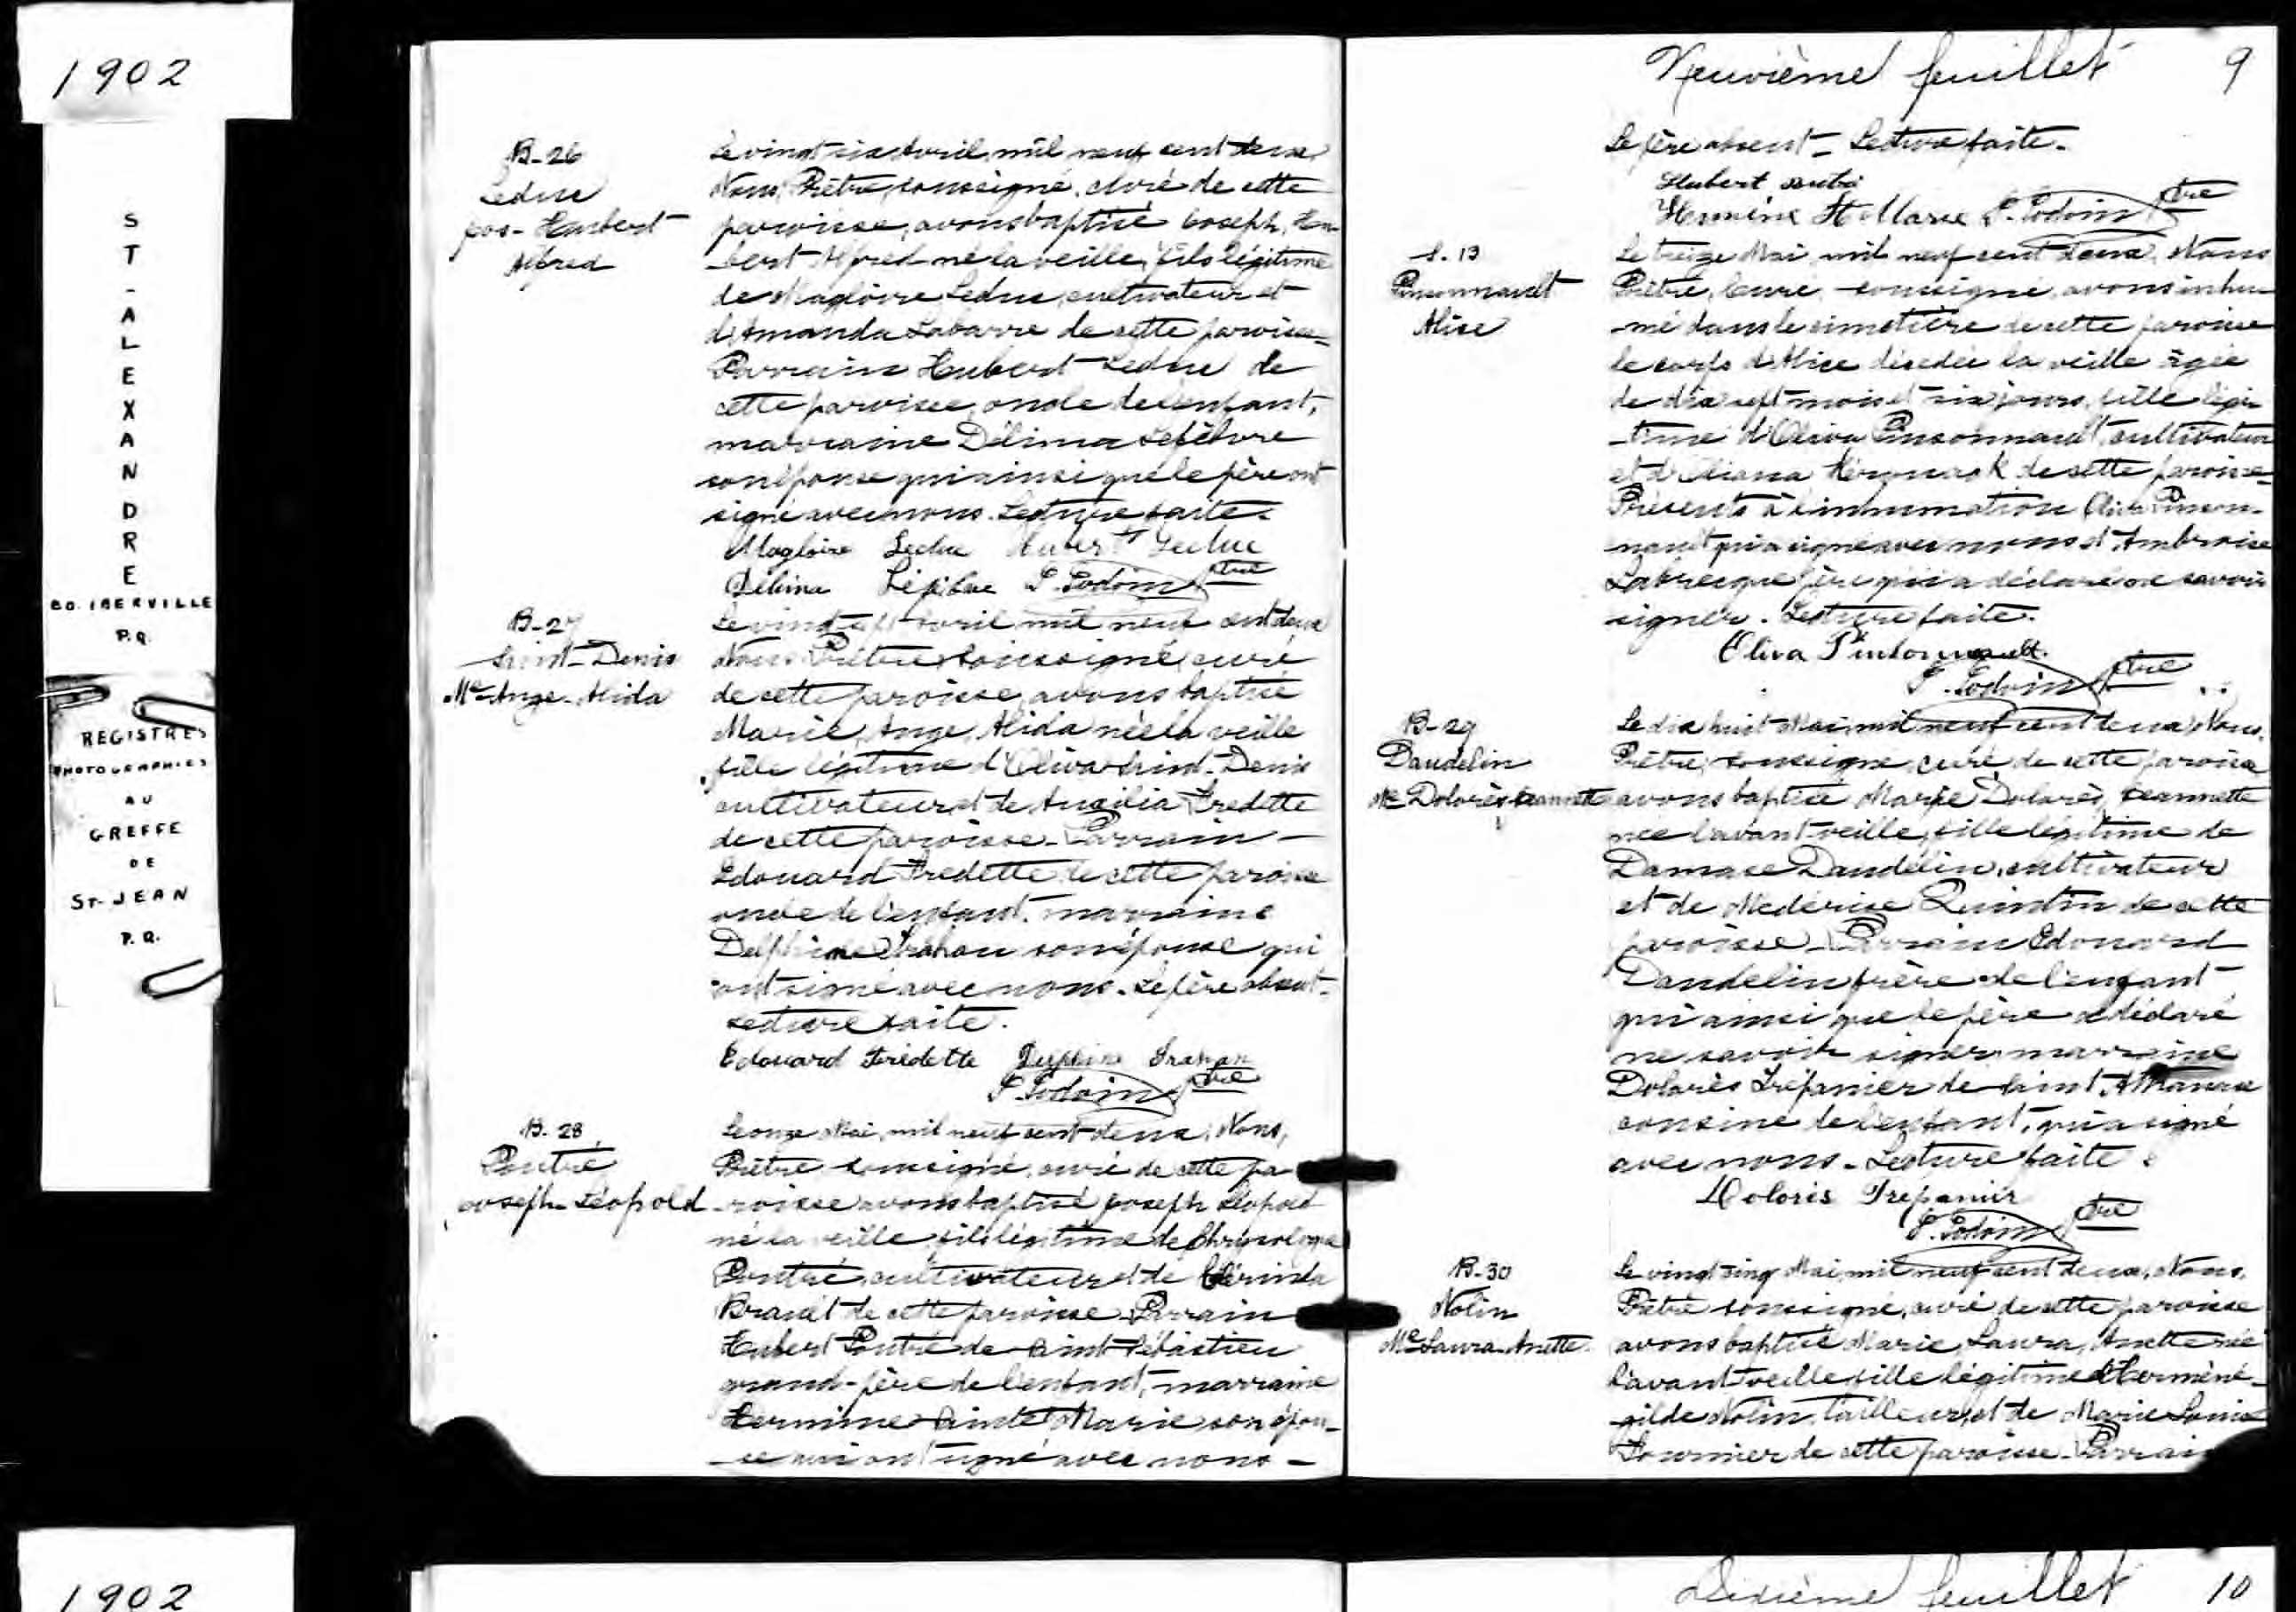 1902
S
T
-
A
L
E
X
A
N
D
R
E
CO. IBERVILLE
P.Q.
REGISTRES
PHOTOGRAPHIES
AU
GREFFE
DE
ST-JEAN
P.Q.
B-26
Leduc
Jos- Humbert
Alfred
Le vingt six Avril, mil neuf cent deux,
Nous, Prêtre, soussigné, curé de cette
paroisse, avons baptisé Joseph, Hum
-bert Alfred né la veille, fils légitime
de Magloire Leduc, cultivateur et
d'Amanda Labarre de cette paroisse-
Parrain Hubert Leduc de
cette paroisse, oncle de l'enfant,
marraine Délima Lefebvre
son épouse qui ainsi que le père ont
signé avec nous. Lecture faite.
Magloire Leduc Hubert Leduc
Délima Lefebvre P. Godoin Ptre
B-27
Saint-Denis
Me Ange-Alida
Le vingt sept Avril mil neuf cent deux
Nous Prêtre soussigné curé
de cette paroisse avons baptisé
Marie, Ange, Alida née la veille
fille légitime d'Oliva Saint-Denis
cultivateur et de Auxilia Fredette
de cette paroisse- Parrain -
Edouard Fredette de cette paroisse
oncle de l'enfant, marraine
Delphine Trahan son épouse qui
ont signé avec nous. Le père absent-
Lecture faite.
Edouard Fredette Delphine Trahan
P. Godoin Ptre
B-28
Poutré
Joseph-Léopold
Le onze Mai, mil neuf cent deux, Nous,
Prêtre soussigné, curé de cette pa
-roisse avons baptisé Joseph Léopold
né la veille, fils légitime de Chrysologue
Poutré, cultivateur et de Clérinda
de cette paroisse- Parrain
Hubert Poutré de Saint Sébastien
grand-père de l'enfant, marraine
Hermine Sainte Marie son épou-
-se qui ont signé avec nous -
Neuvième feuillet 9
Le père absent- Lecture faite-
Hubert
Hermine St Marie P. Godoin Ptre
S. 13
Pinsonnault
Alice
Le treize Mai, mil neuf cent deux, Nous
Prêtre, Curé, soussigné, avons inhu
-mé dans le cimetière de cette paroisse
le corps d'Alice décédée la veille âgée
de dix sept mois et six jours, fille légi-
-time d'Oliva Pinsonnault, cultivateur
et de cette paroisse-
Présents à l'inhumation Oliva Pinson-
nault qui a signé avec nous et Ambroise
Labrecque père qui a déclaré ne savoir
signer. Lecture faite.
Oliva Pinsonnault.
P. Godoin Ptre
B-29
Daudelin
Me Dolorès Jeannette
Le dix huit Mai, mil neuf cent deux, Nous,
Prêtre, soussigné, curé de cette paroisse
avons baptisé Marie Dolorès, Jeannette
née l'avant-veille, fille légitime de
Damase Daudelin, cultivateur
et de Medérise Quintin de cette
paroisse- Parrain Edouard
Daudelin frère de l'enfant
qui ainsi que le père a déclaré
ne savoir signer marraine
Dolorès Trépanier de Saint Athanase
cousine de l'enfant, qui a signé
avec nous- Lecture faite.
Doloris Trepanier
P. Godoin Ptre
B-30
Nolin
Me Laura-Anette
Le vingt cinq Mai, mil neuf cent deux, Nous,
Prêtre soussigné, curé de cette paroisse
avons baptisé Marie, Laura, Anette née
l'avant-veille fille légitime d'Herméné-
-gilde Nolin, tailleur, et de Marie Louise
Fournier de cette paroisse- Parrain
1902
Dixième feuillet 10